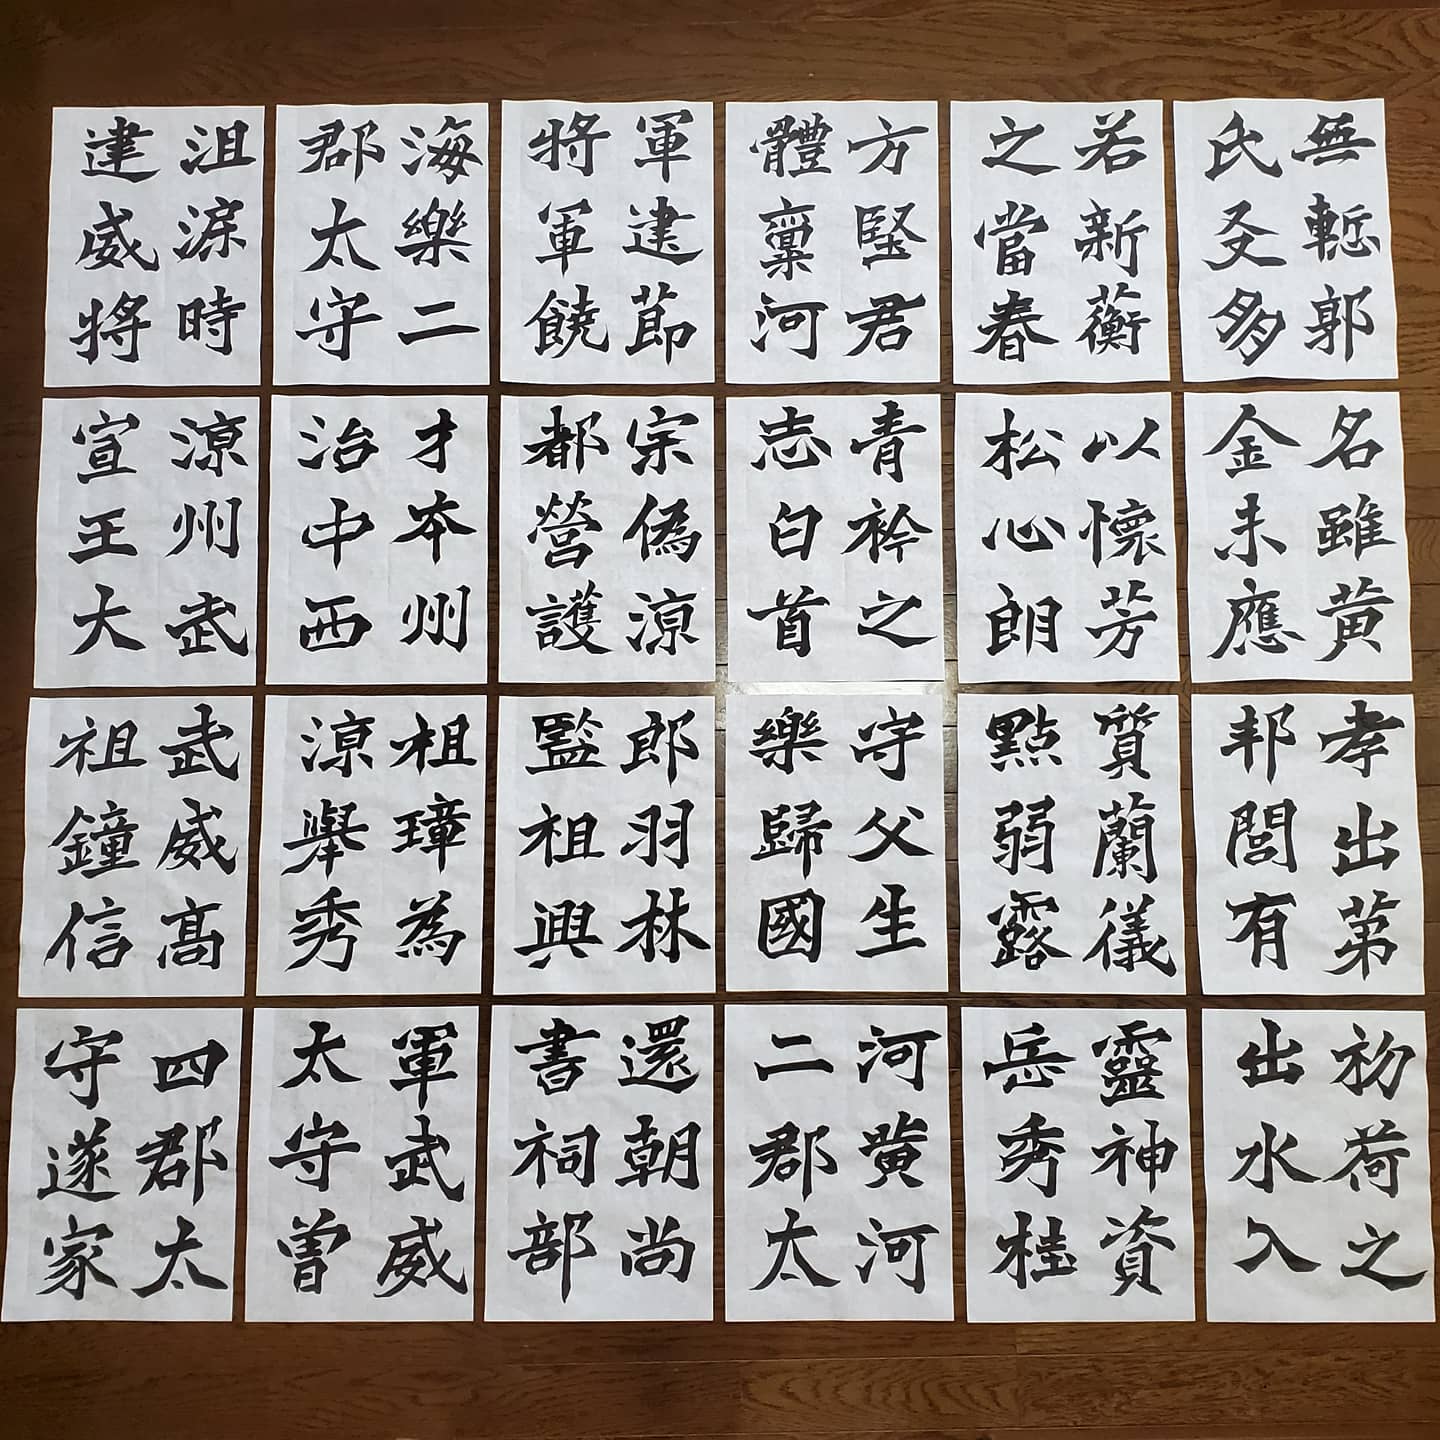 四郡太
守遂家
武威高
祖鐘信
涼州武
宣王大
沮渠時
建威將
軍武威
太守曽
祖璋為
涼舉秀
才本州
治中西
海樂二
郡太守
還朝尚
書祠部
郎羽林
監祖興
宗偽涼
都營護
軍建節
將軍饒
河黄河
二郡太
守父生
樂歸國
青衿之
志白首
方堅君
體稟河
靈神資
岳秀桂
質蘭儀
點弱露
以懷芳
松心朗
若新蘅
之當春
初荷之
出水入
孝出第
邦閭有
名雖黄
金未應
無慙郭
氏友多